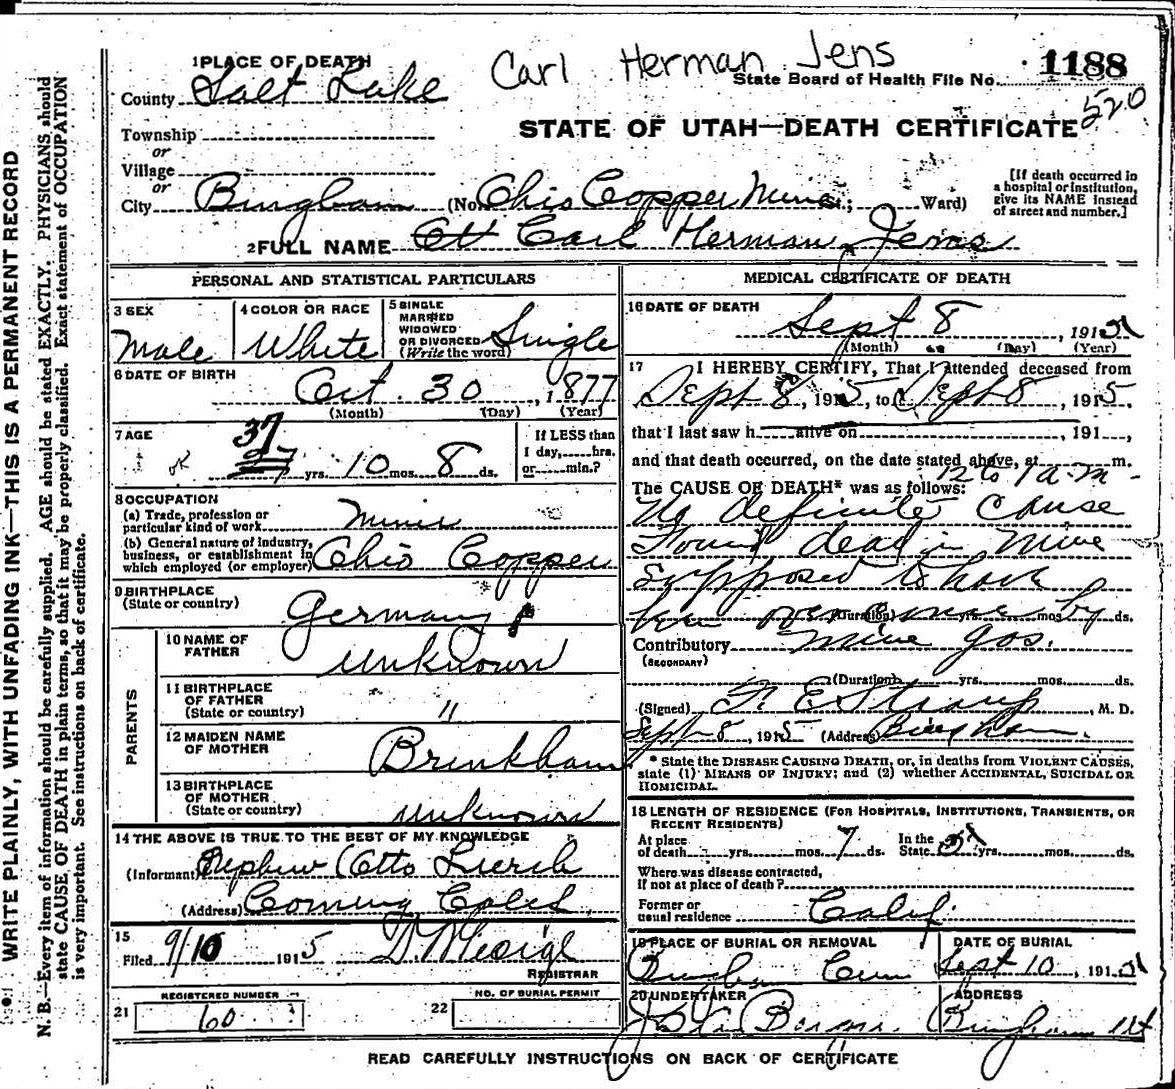 Carl Herman Jens
1 PLACE OF DEATH
State Board of Health File No. 1188
520
County Salt Lake
STATE OF UTAH—DEATH CERTIFICATE
Township
or
Village
or
City Bingham (No. Ohio Copper Mine St.; Ward)
[If death occurred in
a hospital or institution,
give its NAME instead
of street and number.]
2 FULL NAME Ott Carl Herman Jens
PERSONAL AND STATISTICAL PARTICULARS
3 SEX
Male
4 COLOR OR RACE
White
5 SINGLE
MARRIED
WIDOWED
OR DIVORCED
(Write the word)
Single
6 DATE OF BIRTH
Oct. 30, 1877
(Month) (Day) (Year)
7 AGE
ok
37
yrs. 10 mos. 8 ds.
If LESS than
1 day,......hrs.
or......min.?
8 OCCUPATION
(a) Trade, profession or
particular kind of work Miner
(b) General nature of industry,
business, or establishment in
which employed (or employer) Ohio Copper
9 BIRTHPLACE
(State or country)
Germany
PARENTS
10 NAME OF
FATHER
Unknown
11 BIRTHPLACE
OF FATHER
(State or country) "
12 MAIDEN NAME
OF MOTHER
Brinkham
13 BIRTHPLACE
OF MOTHER
(State or country)
Unknown
14 THE ABOVE IS TRUE TO THE BEST OF MY KNOWLEDGE
(Informant) Nephew Otto
(Address) Corning Calif
15
Filed 9/10 1915
REGISTRAR
REGISTERED NUMBER
21 60
22 NO. OF BURIAL PERMIT
MEDICAL CERTIFICATE OF DEATH
16 DATE OF DEATH
Sept 8, 1915
(Month) (Day) (Year)
17 I HEREBY CERTIFY, That I attended deceased from
Sept 8, 1915, to Sept 8, 1915,
that I last saw h alive on , 191 ,
and that death occurred, on the date stated above, at m.
12 to 1 a.m.
The CAUSE OF DEATH* was as follows:
No definite Cause
Found dead in mine
Supposed to have
been overcome by
(Duration) yrs. mos. ds.
Contributory mine gas.
(SECONDARY)
(Duration) yrs. mos. ds.
(Signed) F. E. Straup, M. D.
Sept 8, 1915 (Address) Bingham
* State the DISEASE CAUSING DEATH, or, in deaths from VIOLENT CAUSES,
state (1) MEANS OF INJURY; and (2) whether ACCIDENTAL, SUICIDAL OR
HOMICIDAL.
18 LENGTH OF RESIDENCE (FOR HOSPITALS, INSTITUTIONS, TRANSIENTS, OR
RECENT RESIDENTS)
At place
of death yrs. mos. 7 ds.
In the
State yrs. mos. ds.
Where was disease contracted,
If not at place of death?
Former or
usual residence Calif.
19 PLACE OF BURIAL OR REMOVAL
Bingham Cem
DATE OF BURIAL
Sept 10, 1915
20 UNDERTAKER
ADDRESS
Bingham Ut
READ CAREFULLY INSTRUCTIONS ON BACK OF CERTIFICATE
WRITE PLAINLY, WITH UNFADING INK—THIS IS A PERMANENT RECORD
N. B.—Every item of information should be carefully supplied. AGE should be stated EXACTLY. PHYSICIANS should
state CAUSE OF DEATH in plain terms, so that it may be properly classified. Exact statement of OCCUPATION
is very important. See instructions on back of certificate.